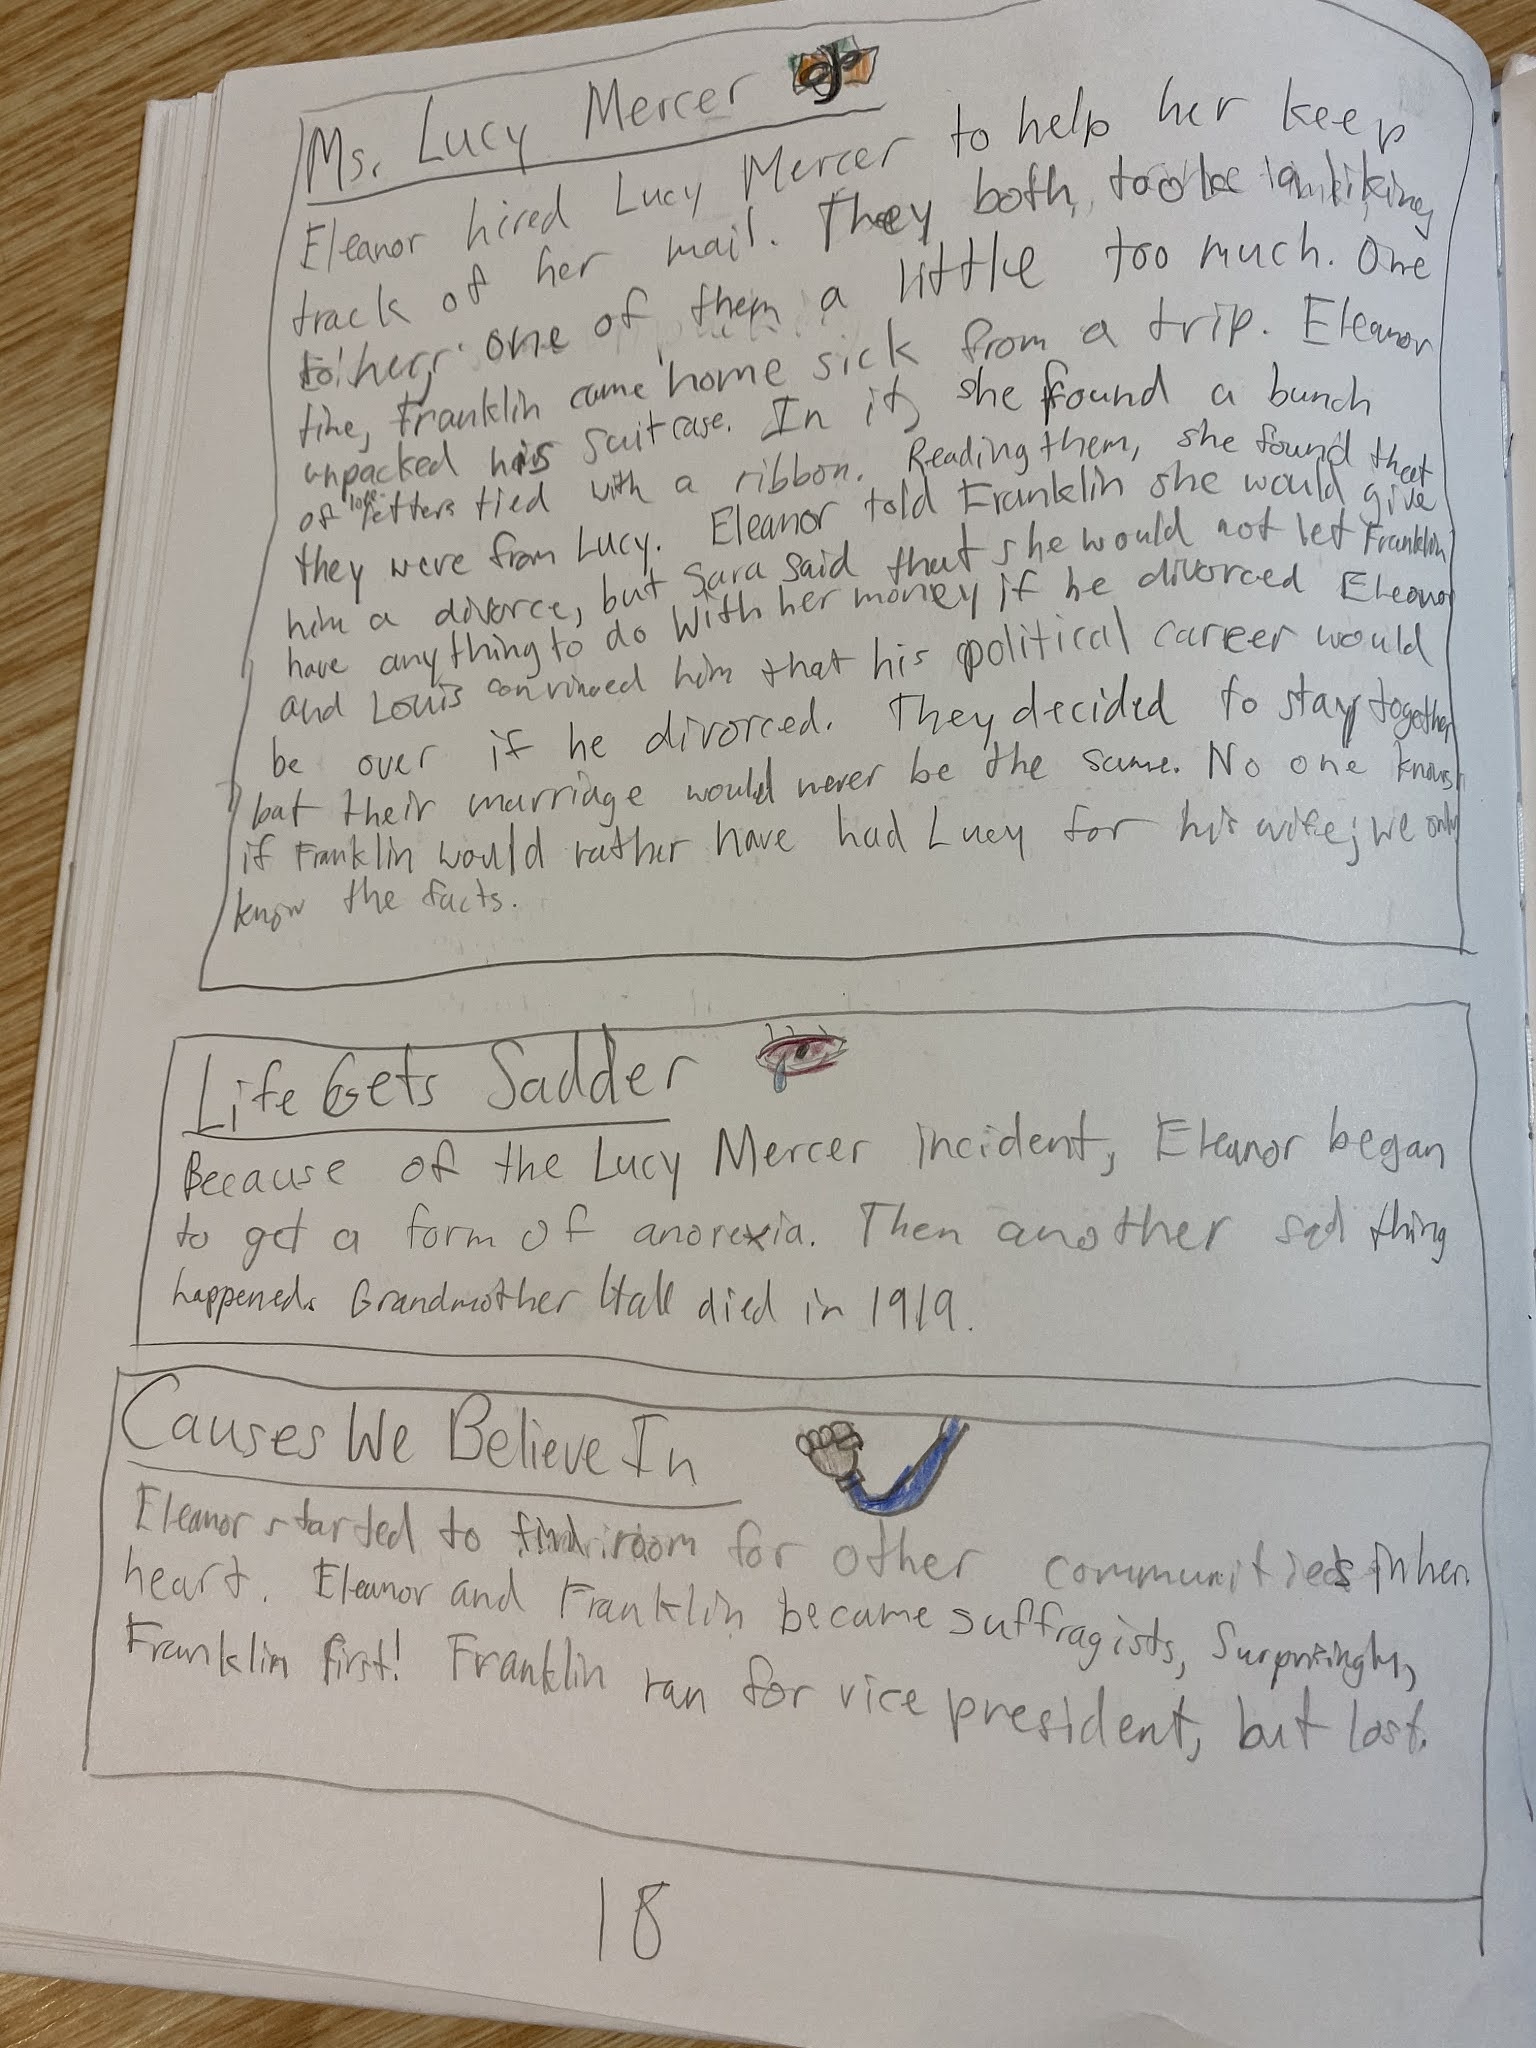 Ms. Lucy Mercer
Eleanor hired Lucy Mercer to help her keep
track of her mail. They both, took a liking
to her, one of them a little too much. One
time, Franklin came home sick from a trip. Eleanor
unpacked his suitcase. In it, she found a bunch
of love letters tied with a ribbon. Reading them, she found that
they were from Lucy. Eleanor told Franklin she would give
him a divorce, but Sara said that she would not let Franklin
have anything to do with her money if he divorced Eleanor
and Louis convinced him that his political career would
be over if he divorced. They decided to stay together,
but their marriage would never be the same. No one knows
if Franklin would rather have had Lucy for his wife; we only
know the facts.
Life Gets Sadder
Because of the Lucy Mercer incident, Eleanor began
to get a form of anorexia. Then another sad thing
happened. Grandmother Hall died in 1919.
Causes We Believe In
Eleanor started to find room for other communities in her
heart. Eleanor and Franklin became suffragists, Surprisingly,
Franklin first! Franklin ran for vice president, but lost.
18